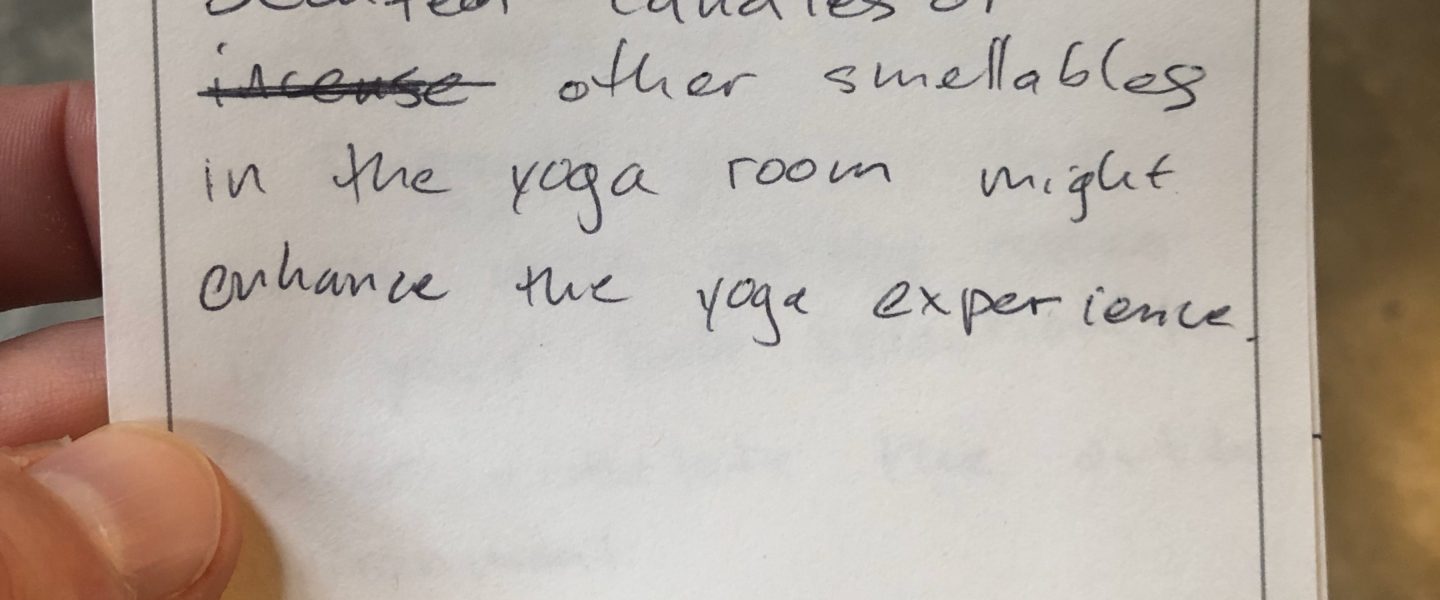 scented candles or
incense other smellables
in the yoga room might
enhance the yoga experience.